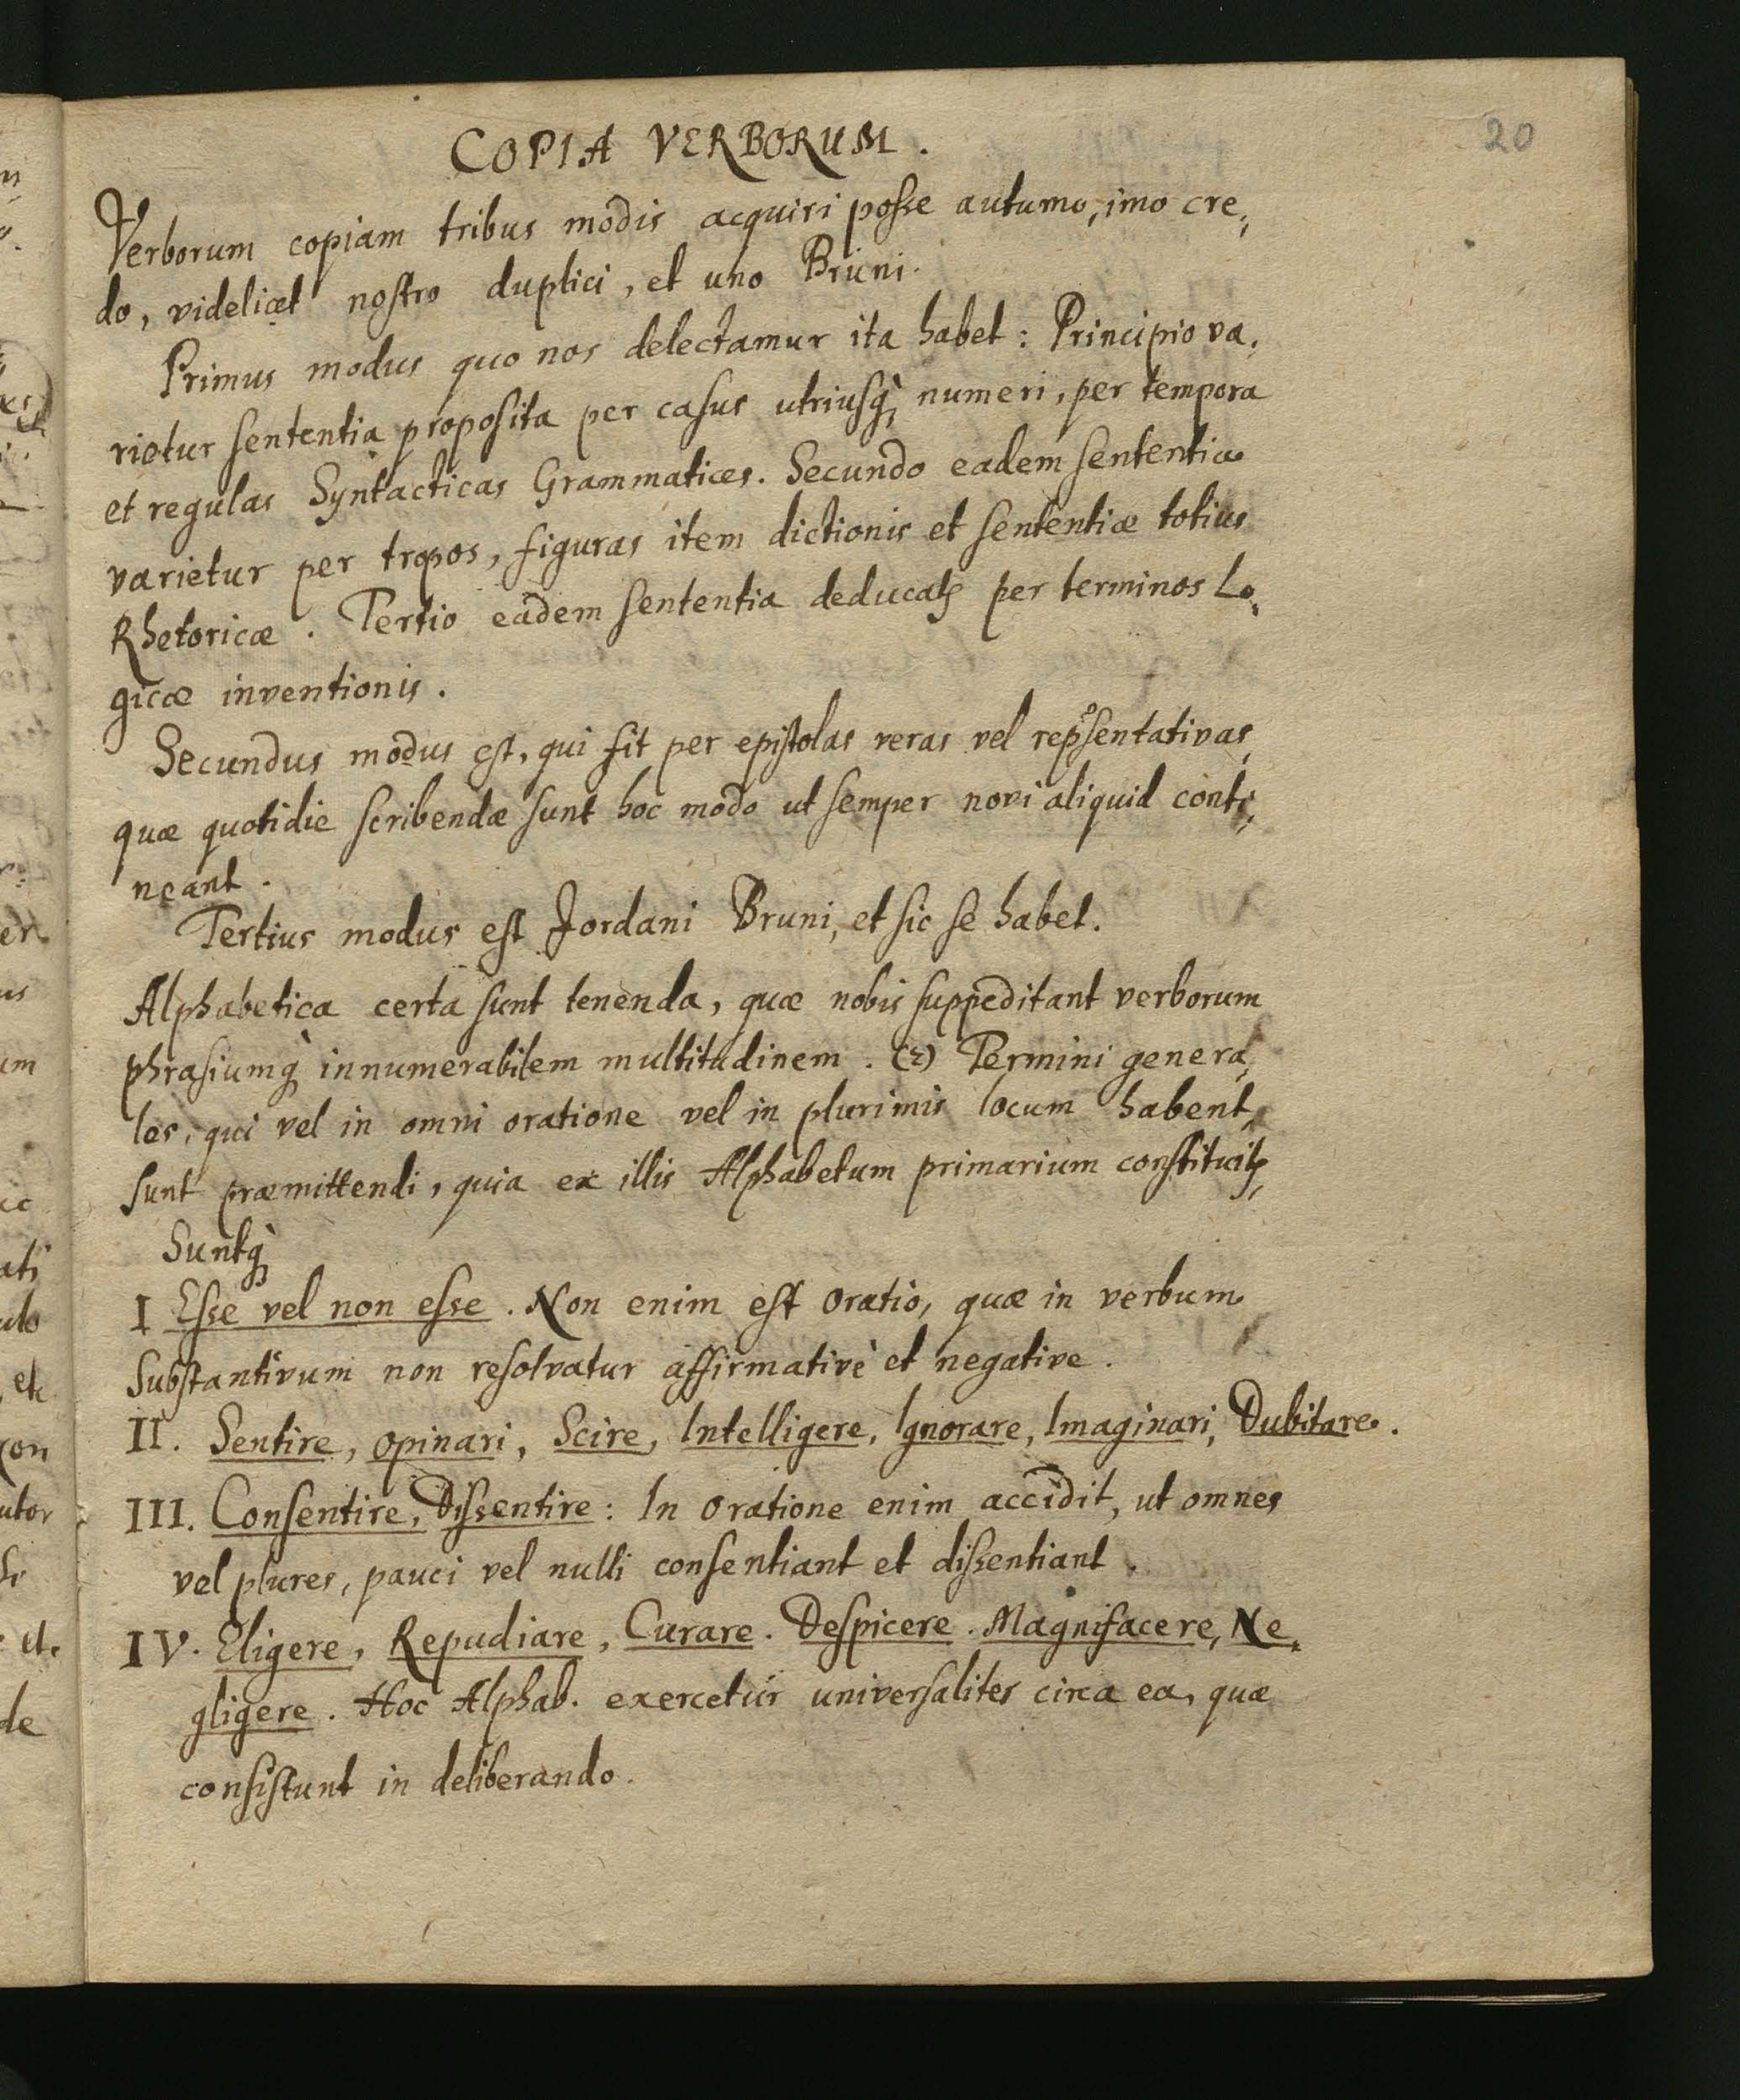 20
COPIA VERBORUM.
Verborum copiam tribus modis acquiri posse autumo, imo cre,
do, videlicet nostro duplici, et uno Bruni.
Primus modus quo nos delectamur ita habet: Principio va,
rietur sententia proposita per casus utriusq; numeri, per tempora
et regulas Syntacticas Grammatices. Secundo eadem sententia
varietur per tropos, figuras item dictionis et sententiæ totius
Rhetoricæ. Tertio eadem sententia deducatꝶ per terminos Lo,
gicæ inventionis.
Secundus modus est, qui fit per epistolas veras vel rep̃sentativas,
quæ quotidie scribendæ sunt hoc modo ut semper novi aliquid conti,
neant.
Tertius modus est Jordani Bruni, et sic se habet.
Alphabetica certa sunt tenenda, quæ nobis suppeditant verborum
phrasiumq; innumerabilem multitudinem. (2) Termini genera,
les, qui vel in omni oratione vel in plurimis locum habent,
sunt præmittendi, quia ex illis Alphabetum primarium constituitꝶ,
Suntq;
I Esse vel non esse. Non enim est oratio, quæ in verbum
Substantivum non resolvatur affirmativè et negative.
II. Sentire, opinari, Scire, Intelligere, Ignorare, Imaginari, Dubitare.
III. Consentire, Dissentire: In oratione enim accidit, ut omnes
vel plures, pauci vel nulli consentiant et dissentiant.
IV. Eligere, Repudiare, Curare. Despicere. Magnifacere, Ne,
gligere. Hoc Alphab. exercetur universaliter circa ea, quæ
consistunt in deliberando.